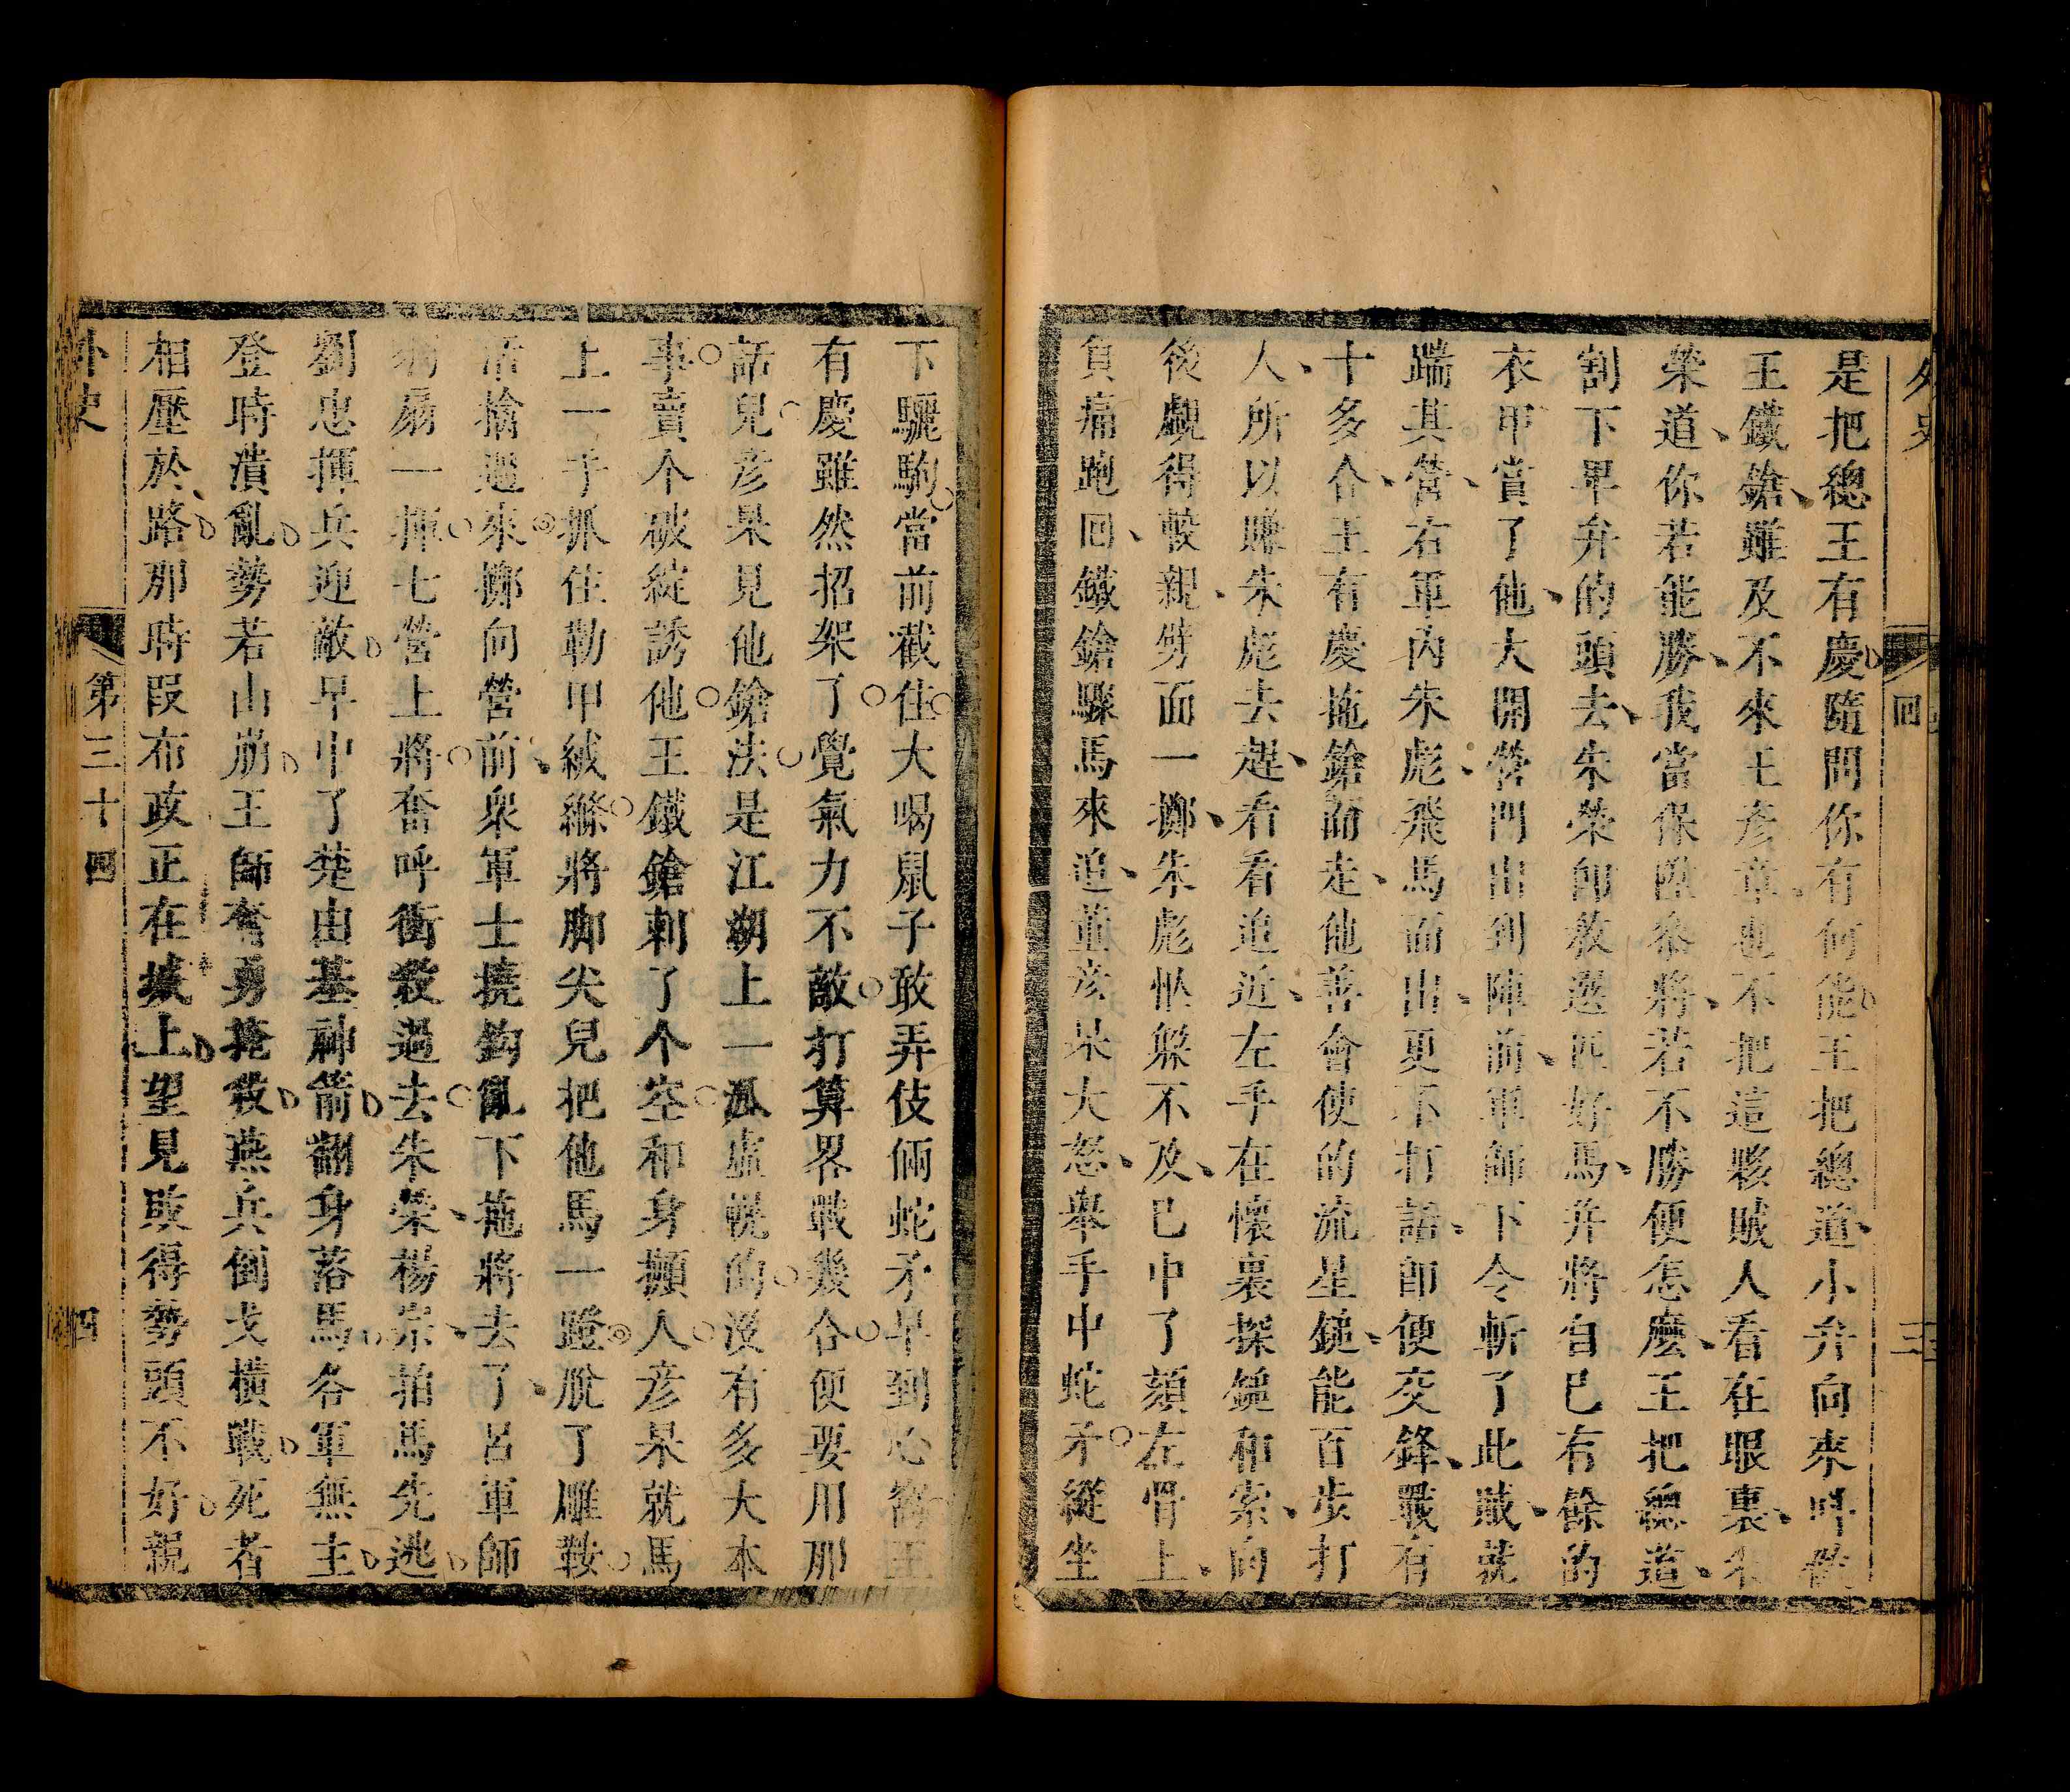 外史
回
三
是把總王有慶隨問你有何能王把總道小弁向來呌做
王鐵鎗雖及不來王彥章也不把這夥賊人看在眼裏朱
榮道你若能勝我當保陞叅將若不勝便怎麽王把總道
割下畢弁的頭去朱榮卽敎選匹好馬并將自己右餘的
衣甲賞了他大開營門出到陣前軍師下令斬了此賊就
踹其營右軍內朱彪飛馬而出更不打話卽便交鋒戰有
十多合王有慶拖鎗而走他善會使的流星鎚能百步打
人所以賺朱彪去趕看看追近左手在懷裏探鎚和索向
後覷得較親劈面一擲朱彪怄躲不及已中了頦左骨上
負痛跑回鐵鎗驟馬來追董彥杲大怒舉手中蛇矛縱坐
下驪駒當前截住大喝鼠子敢弄伎倆蛇矛早到心窩王
有慶雖然招架了覺氣力不敵打算畧戰幾合便要用那
話兒彥杲見他鎗法是江湖上一派虛幌的沒有多大本
事賣个破綻誘他王鐵鎗刺了个空和身攧人彥杲就馬
上一手抓住勒甲絨縧將脚尖兒把他馬一蹬脫了雕鞍
活擒過來擲向營前衆軍士撓鈎亂下拖將去了呂軍師
扇一揮七營上將奮呼衝殺過去朱榮楊宗拍馬先逃
劉忠揮兵迎敵早中了楚由基神箭翻身落馬各軍無主
登時潰亂勢若山崩王師奮勇掩殺燕兵倒戈橫戰死者
相壓於路那時叚布政正在城上望見敗得勢頭不好親
外史
第三十四
四